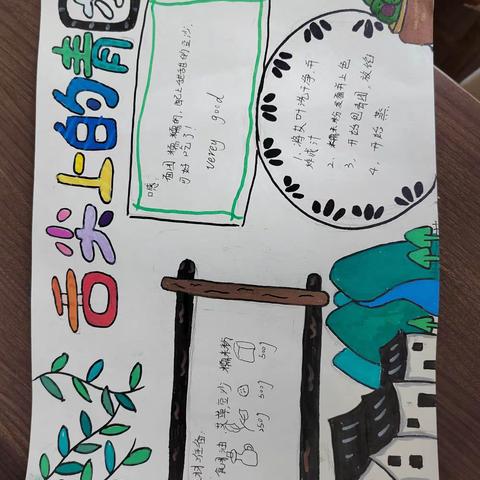 舌尖上的青
嗯,
面团糯糯的,配上甜甜的豆沙,
可好吃了!
verey good
1、将艾叶洗干净,开
汁
2、糯米粉上色
3、开始包青团,放馅
4、开始蒸.
材准备:
食用油 艾草 豆沙 糯米粉
250g 500g 500g